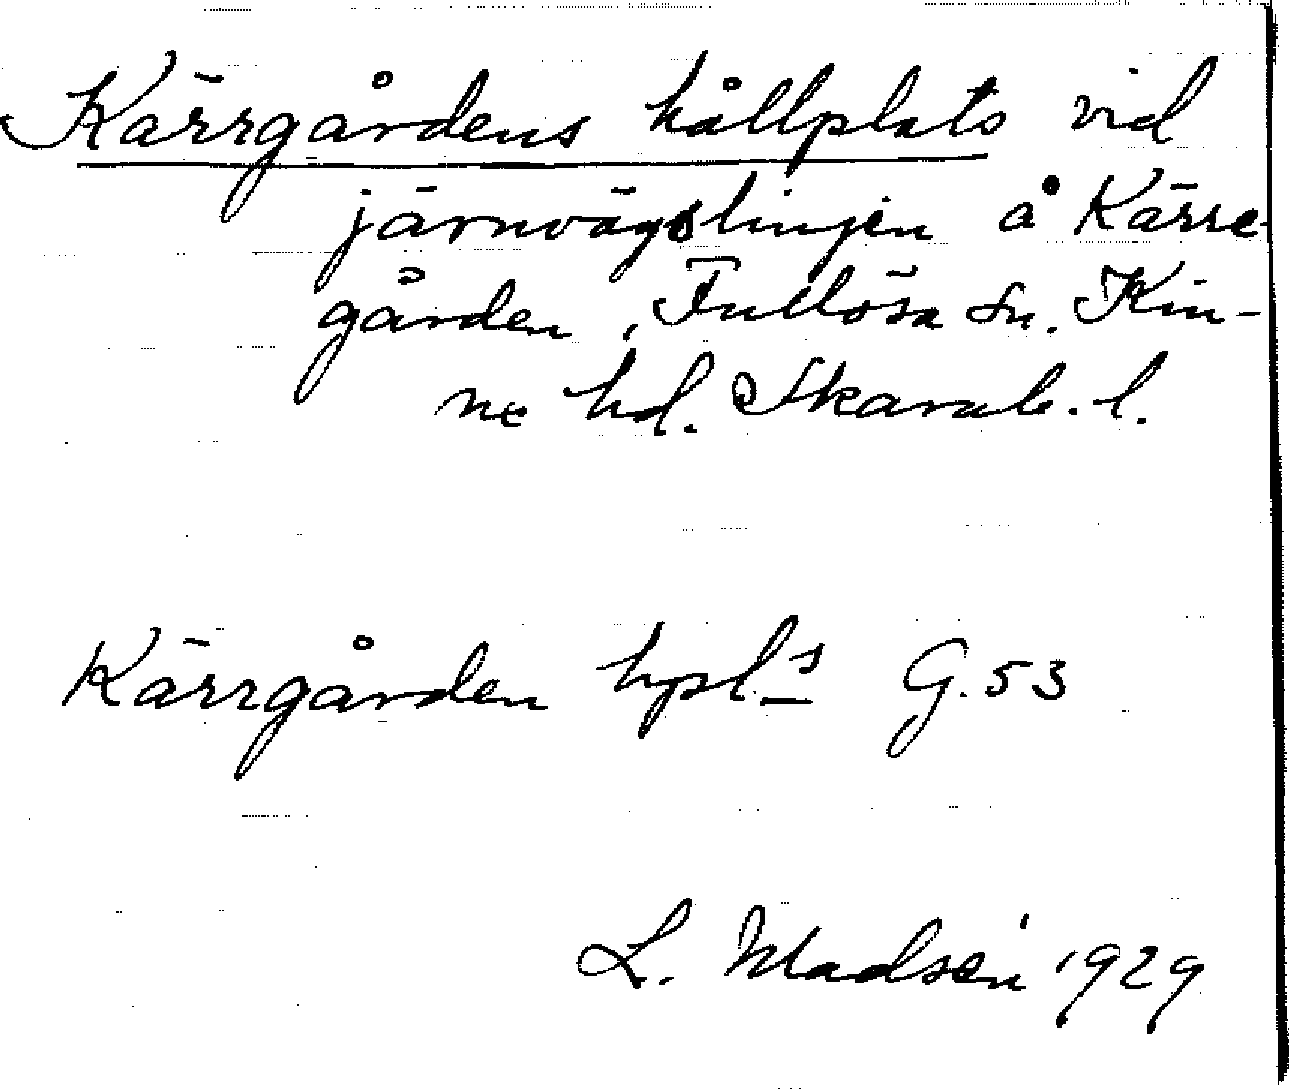 Kärrgårdens hållplats vid
järnvägslinjen å Kärre-
gården, Fullösa sn. Kin-
ne hd. Skarab. l.
Kärrgården hpls G. 53
L. Madsén 1929